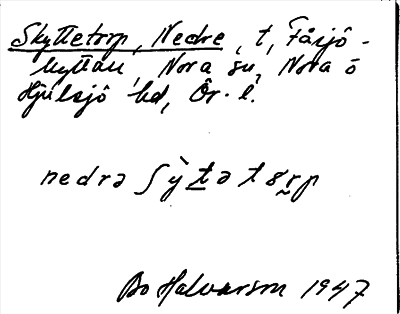 Skyttetorp, Nedre, t, Fåsjö-
hyttan, Nora sn, Nora o
Hjulsjö hd, Ör. l.
nedrə ʃỳt̲ət8r̰p
Bo Halvarson 1947